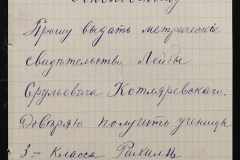 Прошу выдать метрическiе
свидетельства Лейды
Срульовича Котляревскаго.
Доверяю получить ученицы
3- класса Рахиль